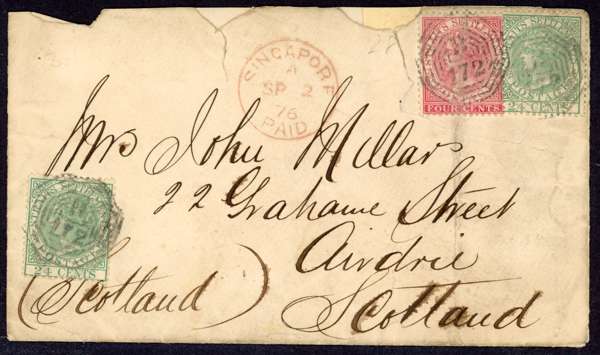 SINGAPORE
A
SP 2
76
PAID
STRAITS SETTLEMENTS
FOUR CENTS
B
172
STRAITS SETTLEMENTS
POSTAGE
24 CENTS
Mrs John Millars
22 Grahame Street
Airdrie
(Scotland) Scotland
STRAITS SETTLEMENTS
B
172
POSTAGE
24 CENTS